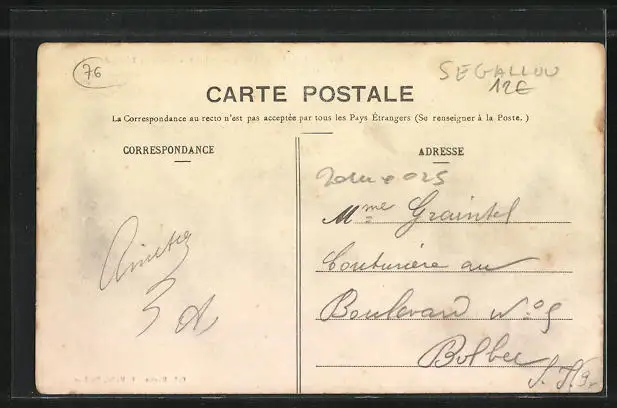 76
SEGALLOU
12E
CARTE POSTALE
La Correspondance au recto n'est pas acceptée par tous les Pays Étrangers (Se renseigner à la Poste.)
CORRESPONDANCE
ADRESSE
Mme Graintel
Couturière au
Boulevard No 5
Bolbec
S. Ifre